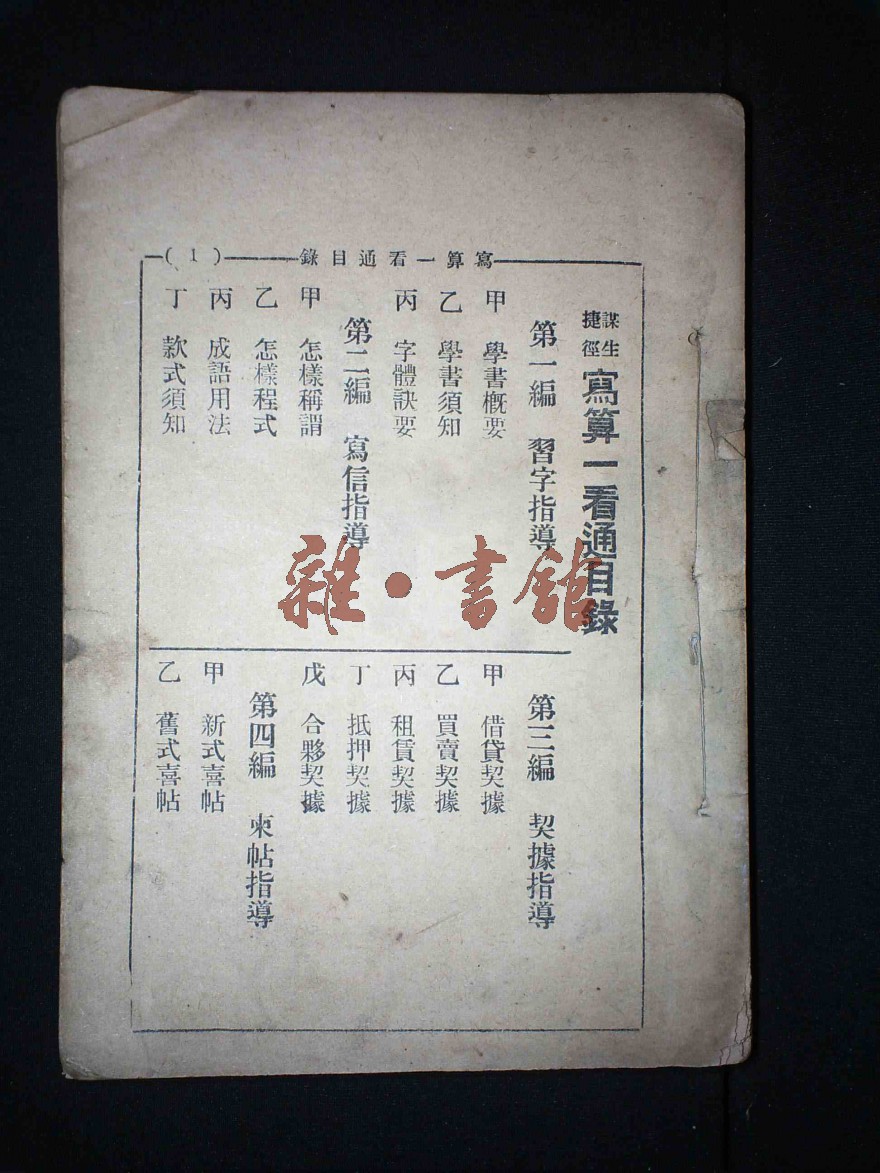 寫算一看通目錄
(1)
謀生捷徑
寫算一看通目錄
第一編 習字指導
甲 學書概要
乙 學書須知
丙 字體訣要
第二編 寫信指導
甲 怎樣稱謂
乙 怎樣程式
丙 成語用法
丁 款式須知
第三編 契據指導
甲 借貸契據
乙 買賣契據
丙 租賃契據
丁 抵押契據
戊 合夥契據
第四編 柬帖指導
甲 新式喜帖
乙 舊式喜帖
雜·書館